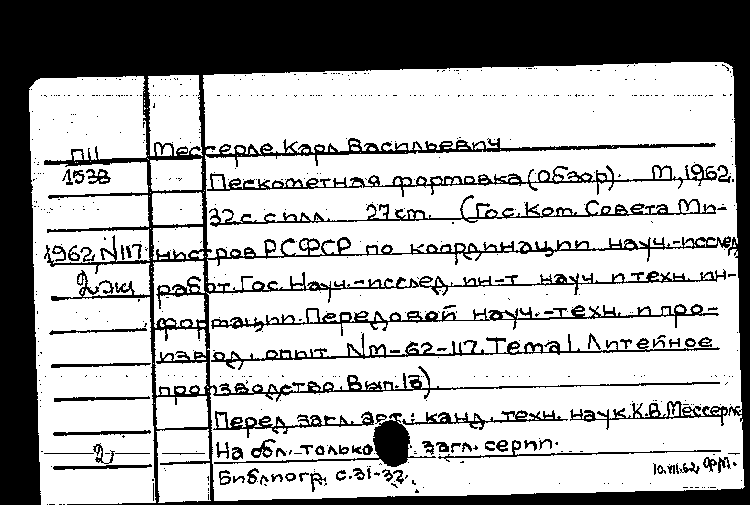 П11 Мессерле, Карл Васильевич
1538 Пескометная формовка (Обзор). М., 1962.
32 с. с илл. 27 см. (Гос. Ком. Совета Ми-
1962, N117 нистров РСФСР по координации науч.-исслед
2 экз. работ. Гос. Науч.-исслед. ин-т науч. и техн. ин-
формации. Передовой науч.-техн. и про-
извод. опыт. N М-62-117. Тема 1. Литейное
производство. Вып. 18).
Перед загл. авт.: канд. техн. наук К.В. Мессерле
2 На обл. только загл. серии.
Библиогр. с. 31-32.
10.VII.62,